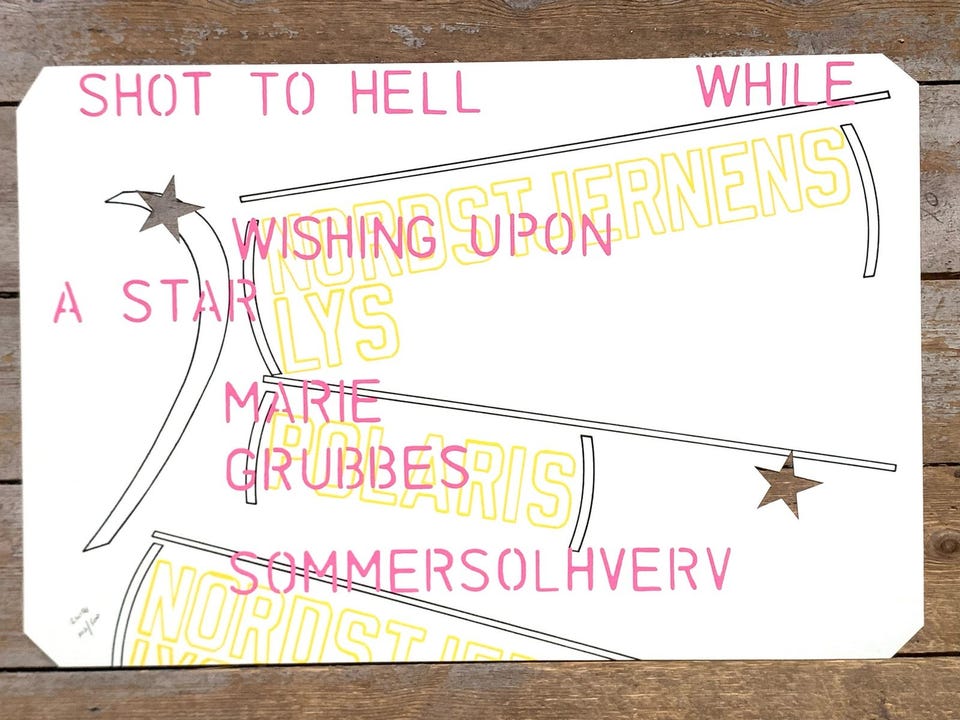 SHOT TO HELL WHILE
NORDSTJERNENS
WISHING UPON
A STAR
LYS
MARIE
POLARIS
GRUBBES
SOMMERSOLHVERV
NORDSTJER
LYS